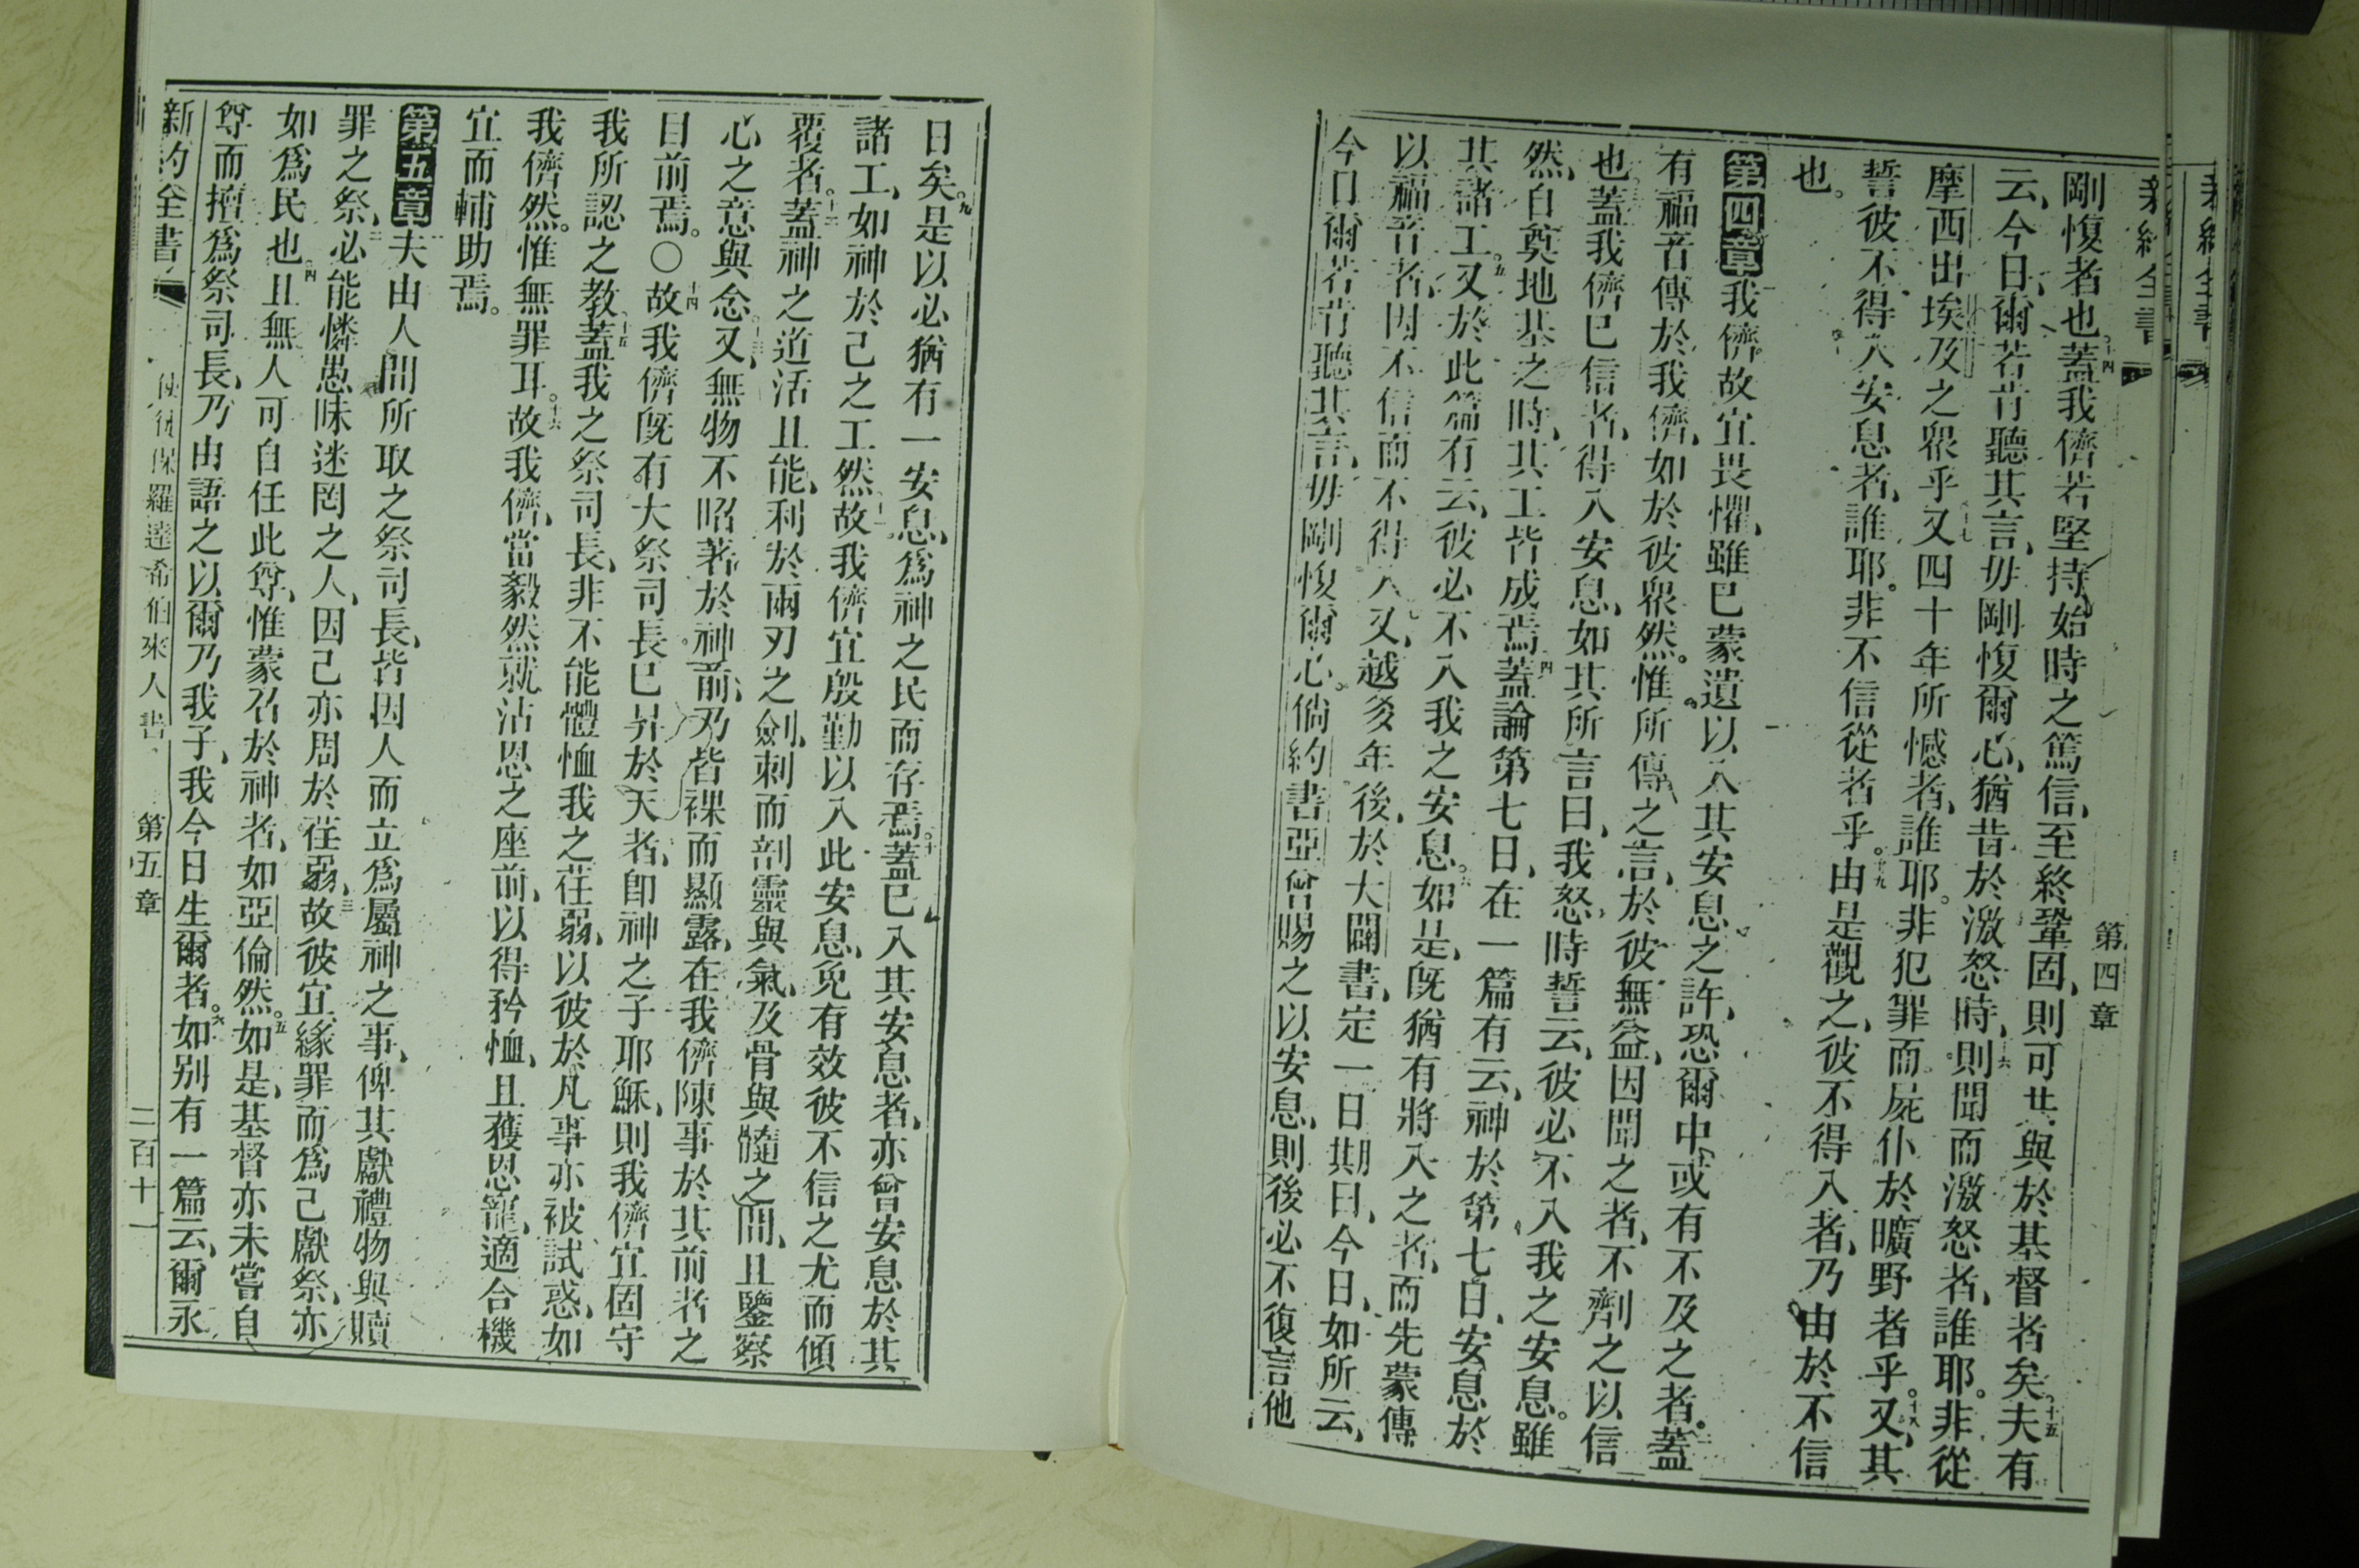 第四章
剛愎者也蓋我儕若堅持始時之篤信至終鞏固則可共與於基督者矣夫有
云今日爾若肯聽其言毋剛愎爾心猶昔於激怒時則聞而激怒者誰耶非從
摩西出埃及之眾乎又四十年所憾者誰耶非犯罪而屍仆於曠野者乎又其
誓彼不得入安息者誰耶非不信從者乎由是觀之彼不得入者乃由於不信
也
第四章我儕故宜畏懼雖已蒙遺以入其安息之許恐爾中或有不及之者蓋
有福音傳於我儕如於彼眾然惟所傳之言於彼無益因聞之者不劑之以信
也蓋我儕已信者得入安息如其所言曰我怒時誓云彼必不入我之安息雖
然自奠地基之時其工皆成焉蓋論第七日在一篇有云神於第七日安息於
其諸工又於此篇有云彼必不入我之安息如是既猶有將入之者而先蒙傳
以福音者因不信而不得入又越多年後於大闢書定一日期曰今日如所云
今日爾若肯聽其言毋剛愎爾心倘約書亞曾賜之以安息則後必不復言他
日矣是以必猶有一安息為神之民而存焉蓋已入其安息者亦曾安息於其
諸工如神於己之工然故我儕宜殷勤以入此安息免有效彼不信之尤而傾
覆者蓋神之道活且能利於兩刃之劍刺而剖靈與氣及骨與髓之間且鑒察
心之意與念又無物不昭著於神前乃皆裸而顯露在我儕陳事於其前者之
目前焉〇故我儕既有大祭司長已昇於天者即神之子耶穌則我儕宜固守
我所認之教蓋我之祭司長非不能體恤我之荏弱以彼於凡事亦被試惑如
我儕然惟無罪耳故我儕當毅然就沾恩之座前以得矜恤且獲恩寵適合機
宜而輔助焉
第五章夫由人間所取之祭司長皆因人而立為屬神之事俾其獻禮物與贖
罪之祭必能憐愚昧迷罔之人因己亦周於荏弱故彼宜緣罪而為己獻祭亦
如為民也且無人可自任此尊惟蒙召於神者如亞倫然如是基督亦未嘗自
尊而擅為祭司長乃由語之以爾乃我子我今日生爾者如別有一篇云爾永
新約全書 使徒保羅達希伯來人書 第五章 二百十一